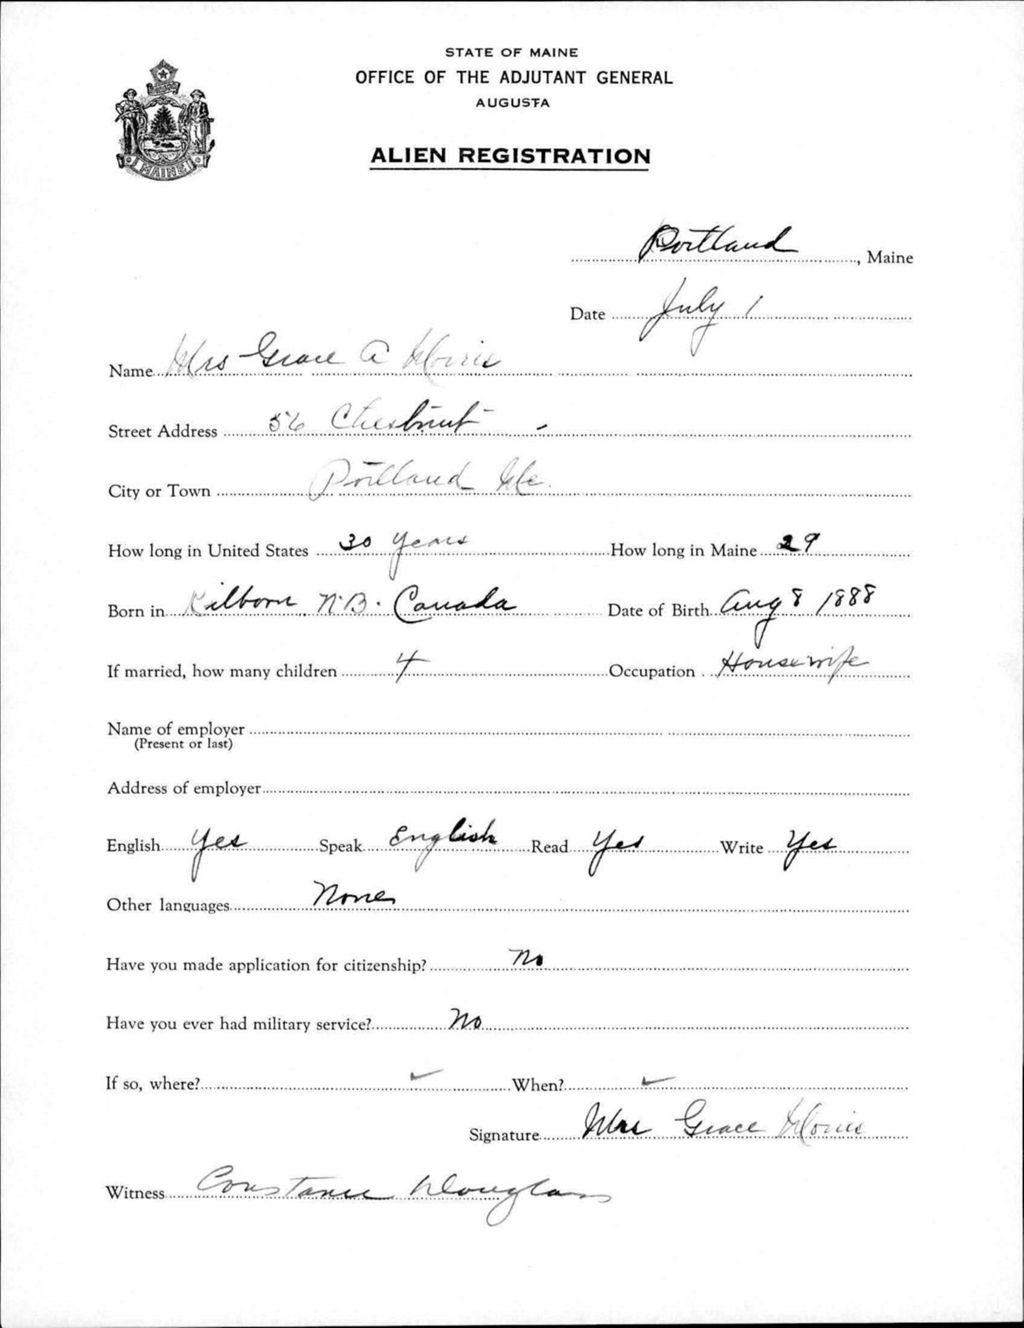 STATE OF MAINE
OFFICE OF THE ADJUTANT GENERAL
AUGUSTA
ALIEN REGISTRATION
MAINE
Portland, Maine
Date July 1
Name Mrs Grace A Morris
Street Address 56 Chestnut -
City or Town Portland Me.
How long in United States 30 years How long in Maine 29
Born in Kilborn N.B. Canada Date of Birth Aug 8 1888
If married, how many children 4 Occupation Housewife
Name of employer
(Present or last)
Address of employer
English Yes Speak English Read Yes Write Yes
Other languages None
Have you made application for citizenship? No
Have you ever had military service? No
If so, where? When?
Signature Mrs Grace Morris
Witness Constance Douglass